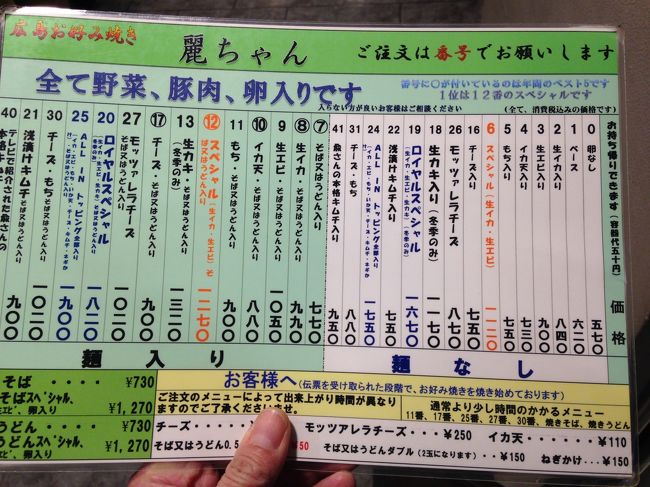 広島お好み焼き
麗ちゃん
ご注文は番号でお願いします
全て野菜、豚肉、卵入りです
番号に〇が付いているのは年間のベスト5です
1位は12番のスペシャルです
入らない方が良いお客様はご相談ください
(全て、消費税込みの価格です)
お持ち帰りできます(容器代五十円)
価格
0 卵なし 五七〇
1 ベース 六二〇
2 生イカ入り 八四〇
3 生エビ入り
4 イカ天入り 七三〇
5 もち入り 七五〇
6 スペシャル(生イカ・生エビ) 一一二〇
16 チーズ入り 七五〇
26 モッツァレラチーズ
18 生カキ入り(冬季のみ)
19 ロイヤルスペシャル 一六七〇
22 浅漬けキムチ入り
24 ALL-IN トッピング全部入り 一七五〇
31 チーズ・もち 九〇〇
41 粂さんの本格キムチ入り 九五〇
麺なし
⑦ そば又はうどん入り 七七〇
⑧ 生イカ・そば又はうどん入り
⑨ 生エビ・そば又はうどん入り
⑩ イカ天・そば又はうどん入り 八八〇
11 もち・そば又はうどん入り 九〇〇
⑫ スペシャル(生イカ・生エビ)そば又はうどん入り 一二七〇
13 生カキ・そば又はうどん入り(冬季のみ) 一三二〇
⑰ チーズ・そば又はうどん入り 九〇〇
27 モッツァレラチーズ そば又はうどん入り 一〇二〇
20 ロイヤルスペシャル 一八二〇
25 ALL-IN トッピング全部入り 一九〇〇
30 チーズ・もち・そば又はうどん入り
21 浅漬けキムチ・そば又はうどん入り 一〇二〇
40 テレビで紹介された粂さんの
麺入り
そば ・・・・ ¥730
そばスペシャル、
卵入り ¥1,270
うどん ・・・・ ¥730
うどんスペシャル、
卵入り ¥1,270
お客様へ(伝票を受け取られた段階で、お好み焼きを焼き始めております)
ご注文のメニューによって出来上がり時間が異なり
ますのでご了承くださいませ。
通常より少し時間のかかるメニュー
11番、17番、25番、27番、30番、焼きそば、焼うどん
チーズ・・・
モッツァレラチーズ・・・ ¥250
イカ天・・・・ ¥110
そば又はうどん0.5
そば又はうどんダブル(2玉になります)・・ ¥150
ねぎかけ・・・ ¥150